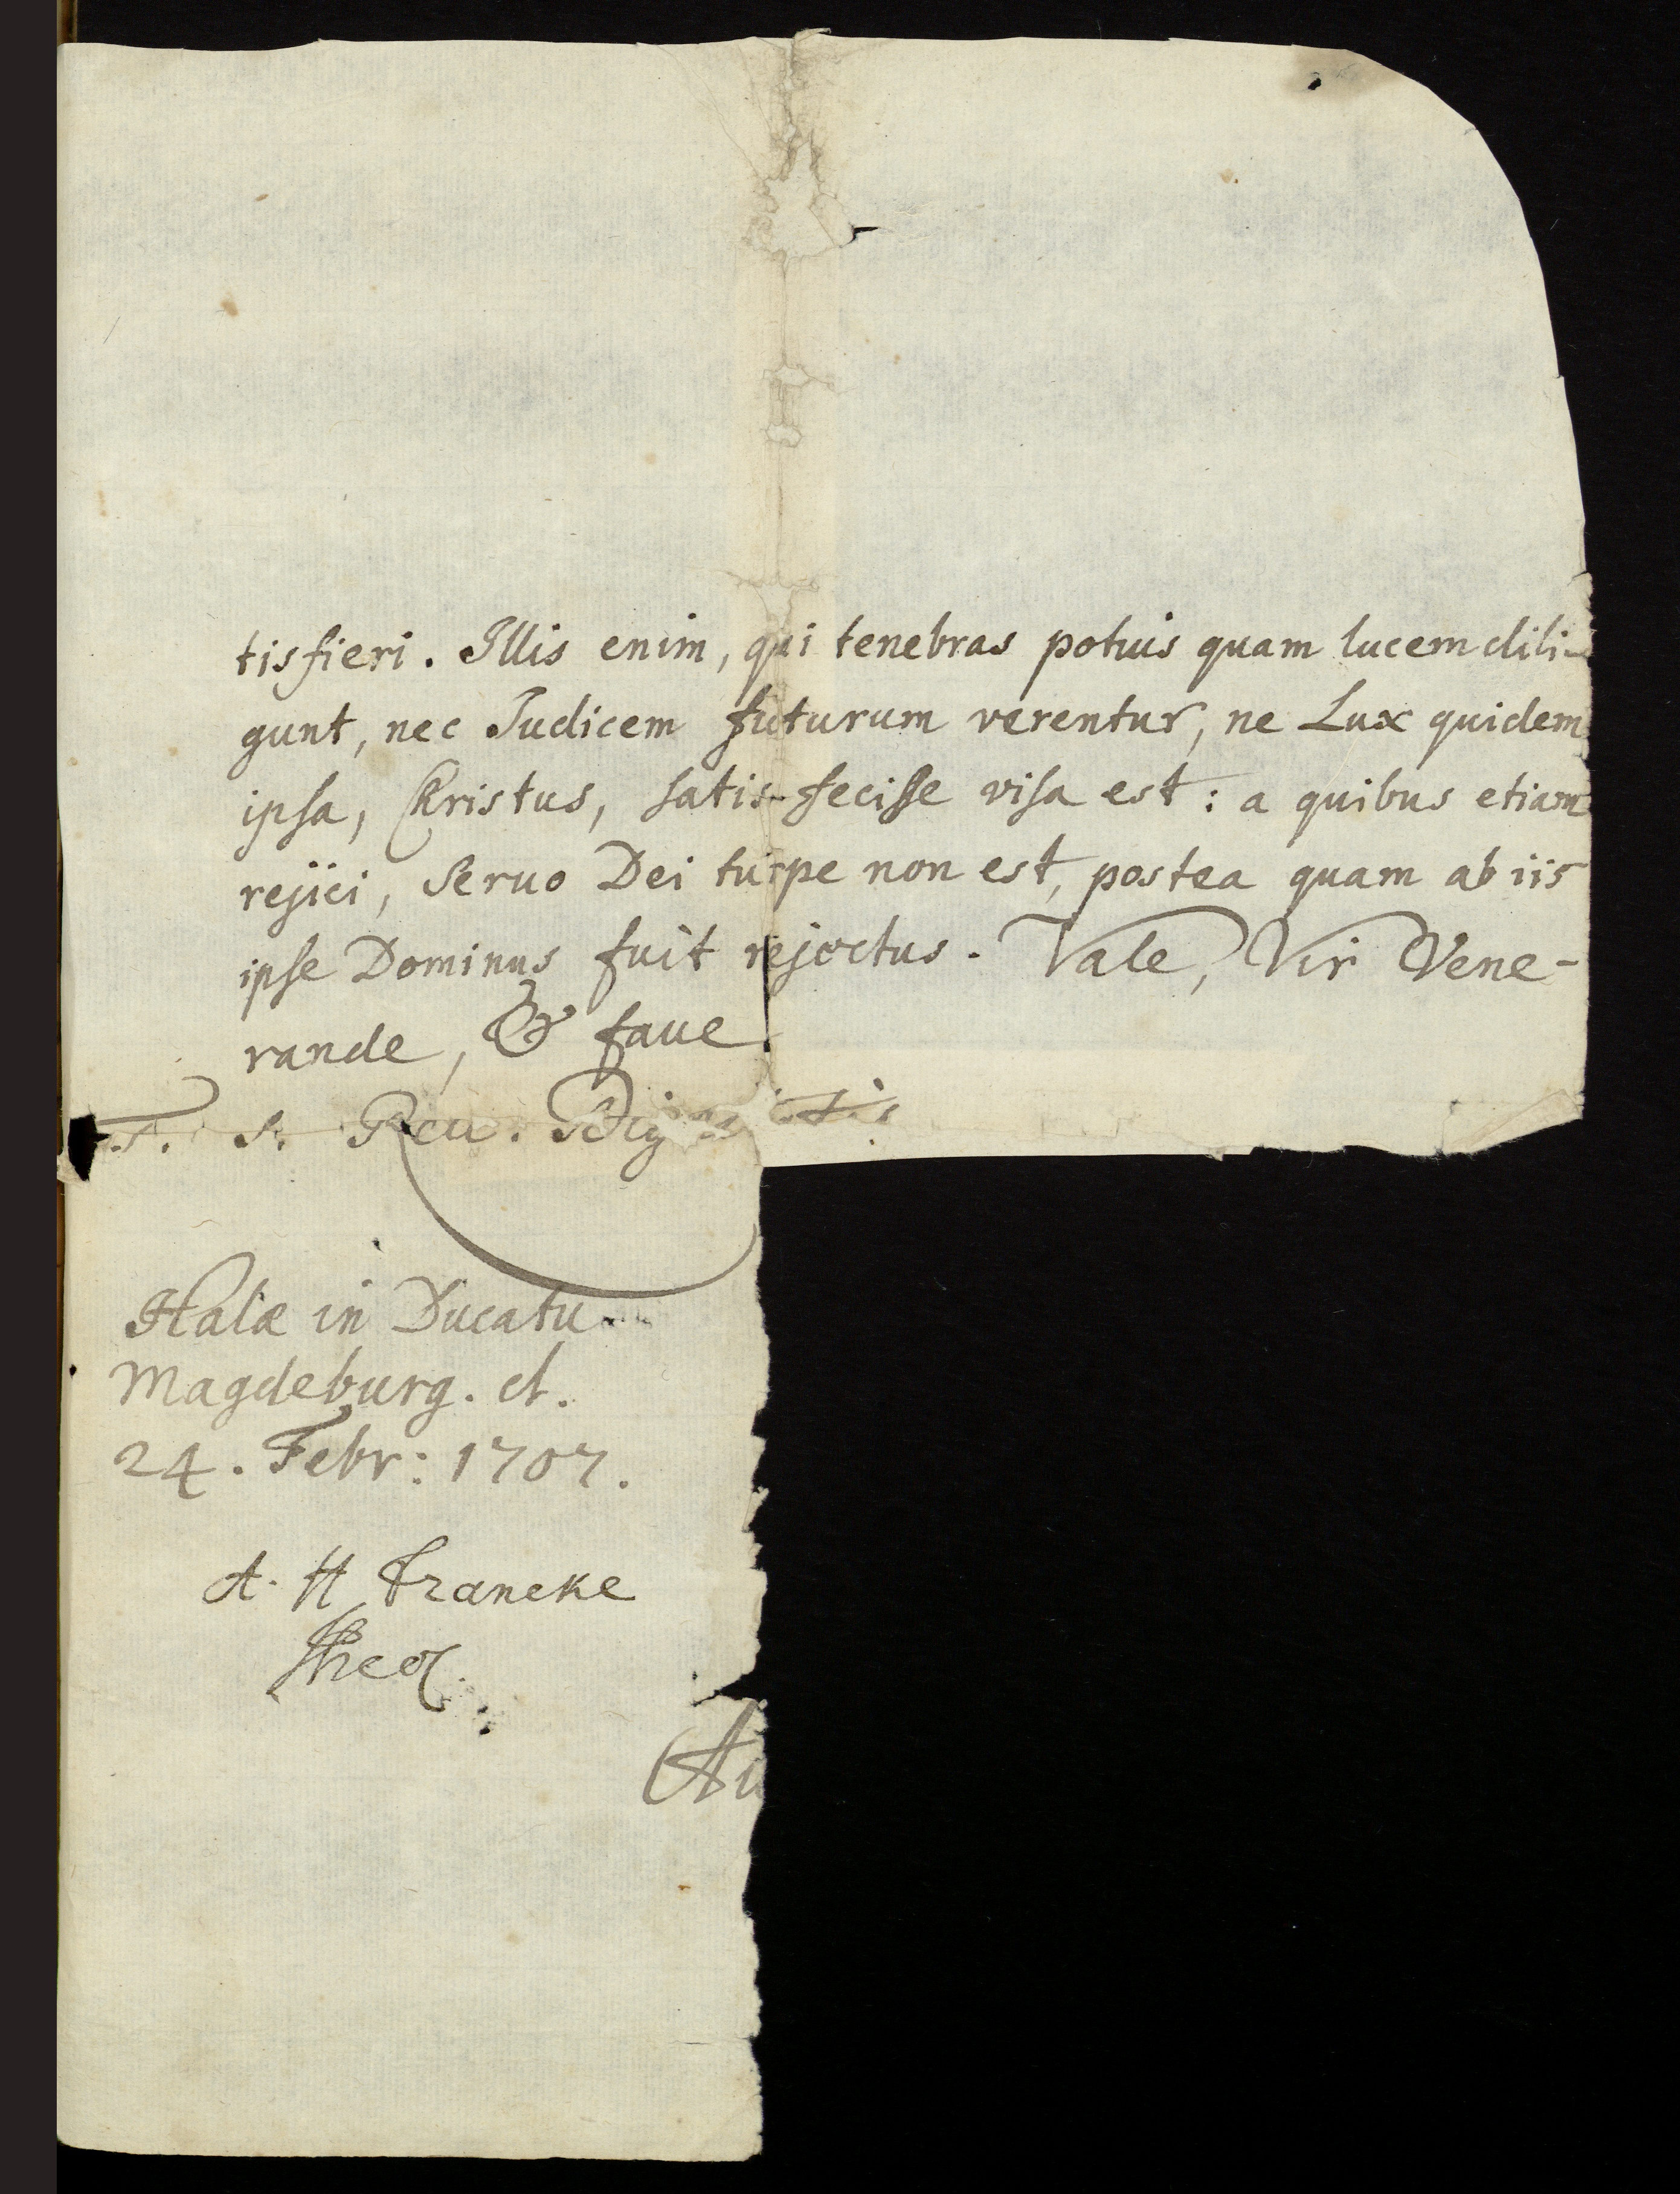 tisfieri. Illis enim, qui tenebras potius quam lucem dili-
gunt, nec Judicem futurum verentur, ne Lux quidem
ipsa, Christus, satis-fecisse visa est: a quibus etiam
rejici, Seruo Dei turpe non est, postea quam ab iis
ipse Dominus fuit rejectus. Vale, Vir Vene-
rande, & faue
T. S. Reu. Dig
Halæ in Ducatu
Magdeburg. d.
24. Febr: 1707.
A. H Francke
Theol
Au